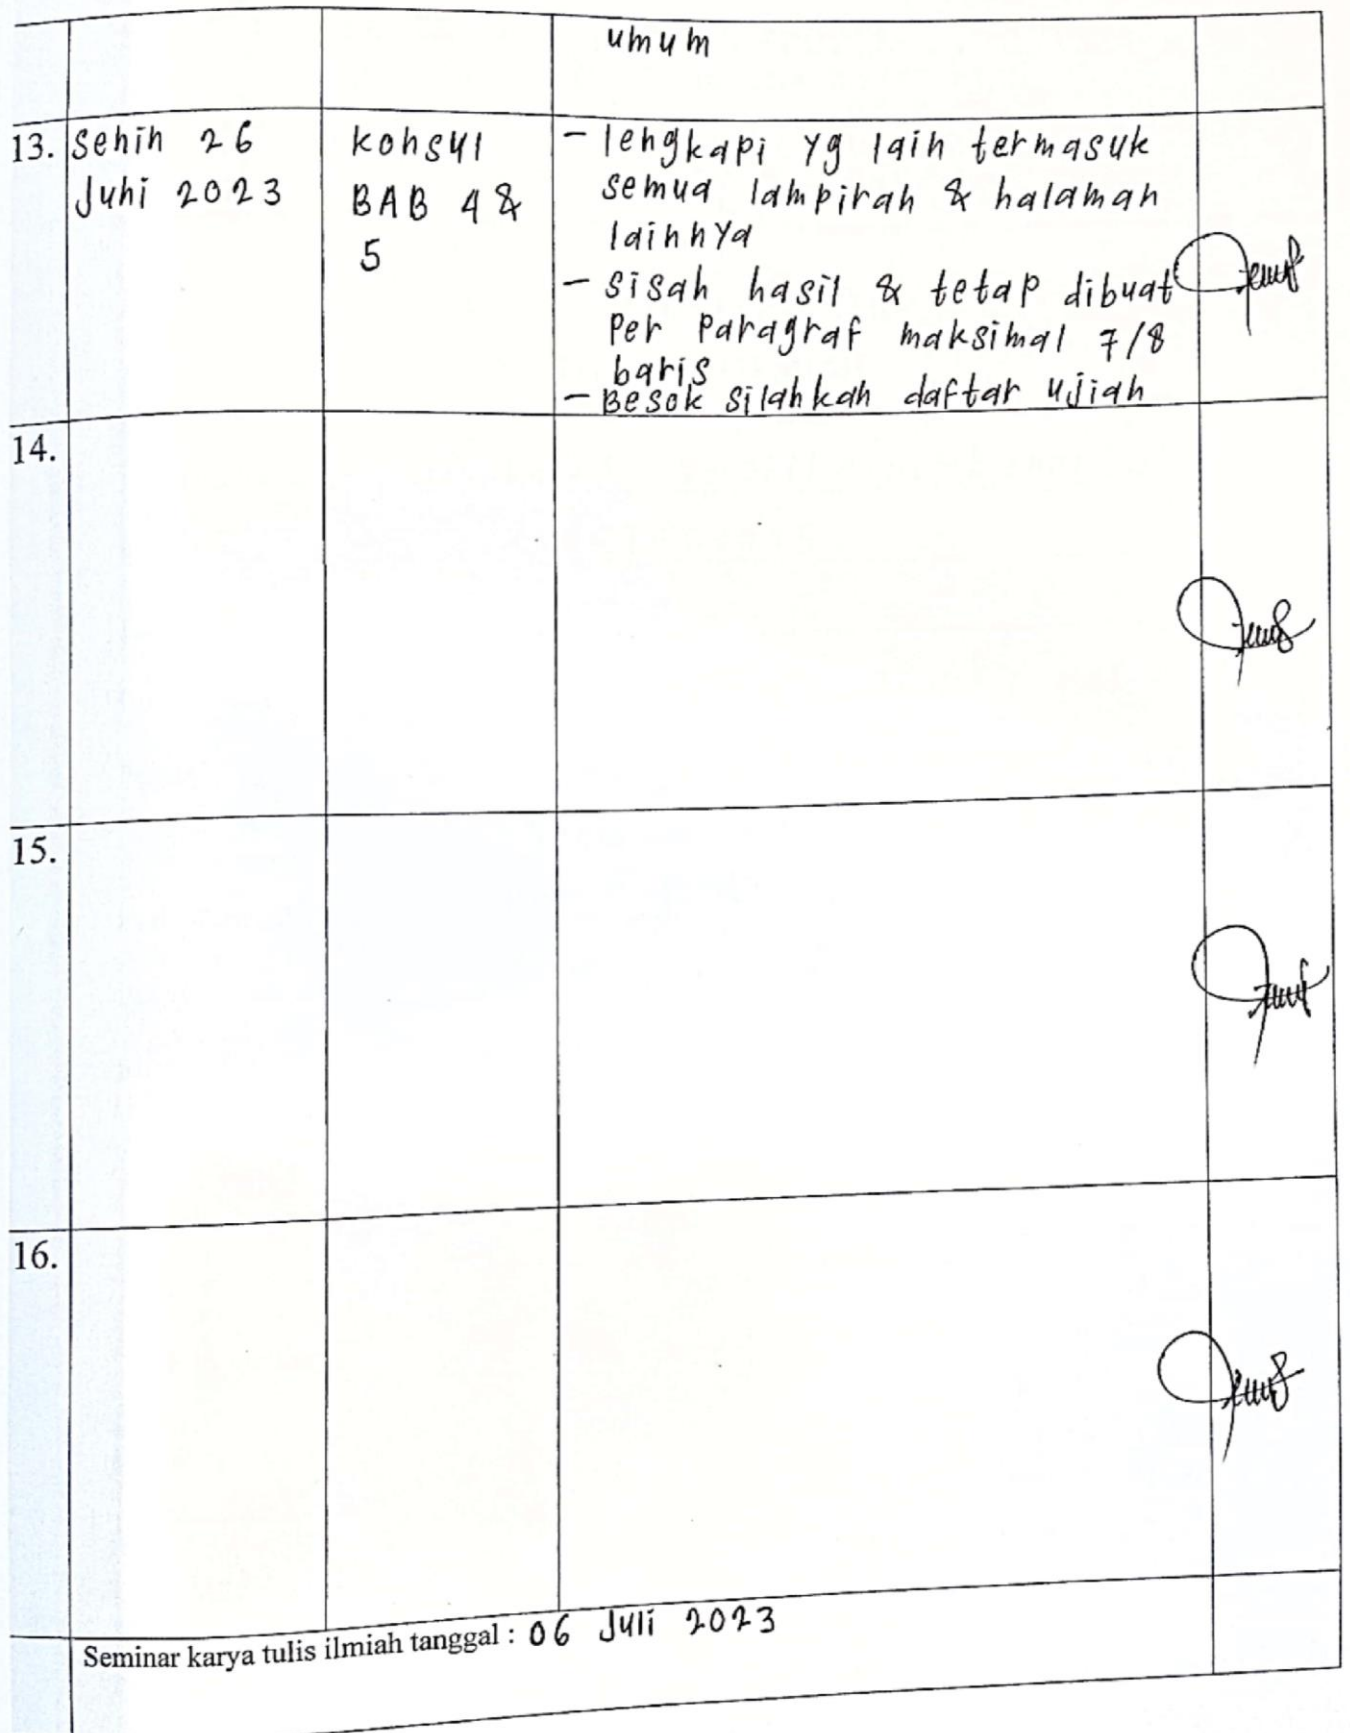 umum
13. Senin 26 Juni 2023
konsul BAB 4 & 5
- lengkapi yg lain termasuk
semua lampiran & halaman
lainnya
- sisah hasil & tetap dibuat
Per Paragraf maksimal 7/8
baris
- Besok silahkan daftar ujian
14.
15.
16.
Seminar karya tulis ilmiah tanggal : 06 Juli 2023